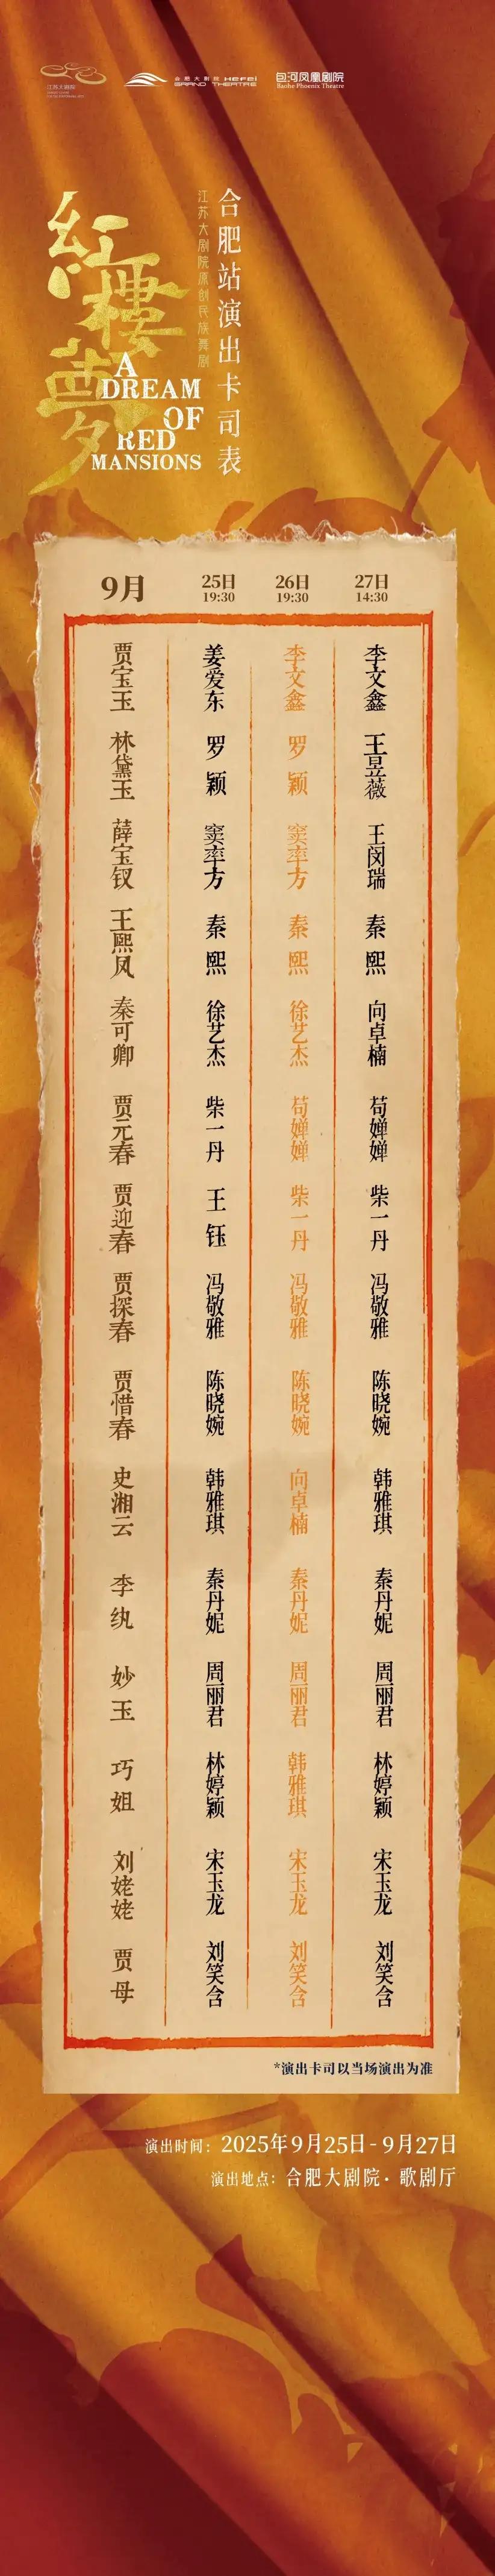 江苏大剧院
合肥大剧院 HEFEI
GRAND THEATRE
包河凤凰剧院
Baohe Phoenix Theatre
合肥站演出卡司表
江苏大剧院原创民族舞剧
紅樓夢
A
DREAM
OF
RED
MANSIONS
9月 25日 26日 27日
19:30 19:30 14:30
贾宝玉 姜爱东 李文鑫 李文鑫
林黛玉 罗颖 罗颖 王昱薇
薛宝钗 窦率方 窦率方 王闵瑞
王熙凤 秦熙 秦熙 秦熙
秦可卿 徐艺杰 徐艺杰 向卓楠
贾元春 柴一丹 苟婵婵 苟婵婵
贾迎春 王钰 柴一丹 柴一丹
贾探春 冯敬雅 冯敬雅 冯敬雅
贾惜春 陈晓婉 陈晓婉 陈晓婉
史湘云 韩雅琪 向卓楠 韩雅琪
李纨 秦丹妮 秦丹妮 秦丹妮
妙玉 周丽君 周丽君 周丽君
巧姐 林婷颖 韩雅琪 林婷颖
刘姥姥 宋玉龙 宋玉龙 宋玉龙
贾母 刘笑含 刘笑含 刘笑含
*演出卡司以当场演出为准
演出时间：2025年9月25日-9月27日
演出地点：合肥大剧院·歌剧厅